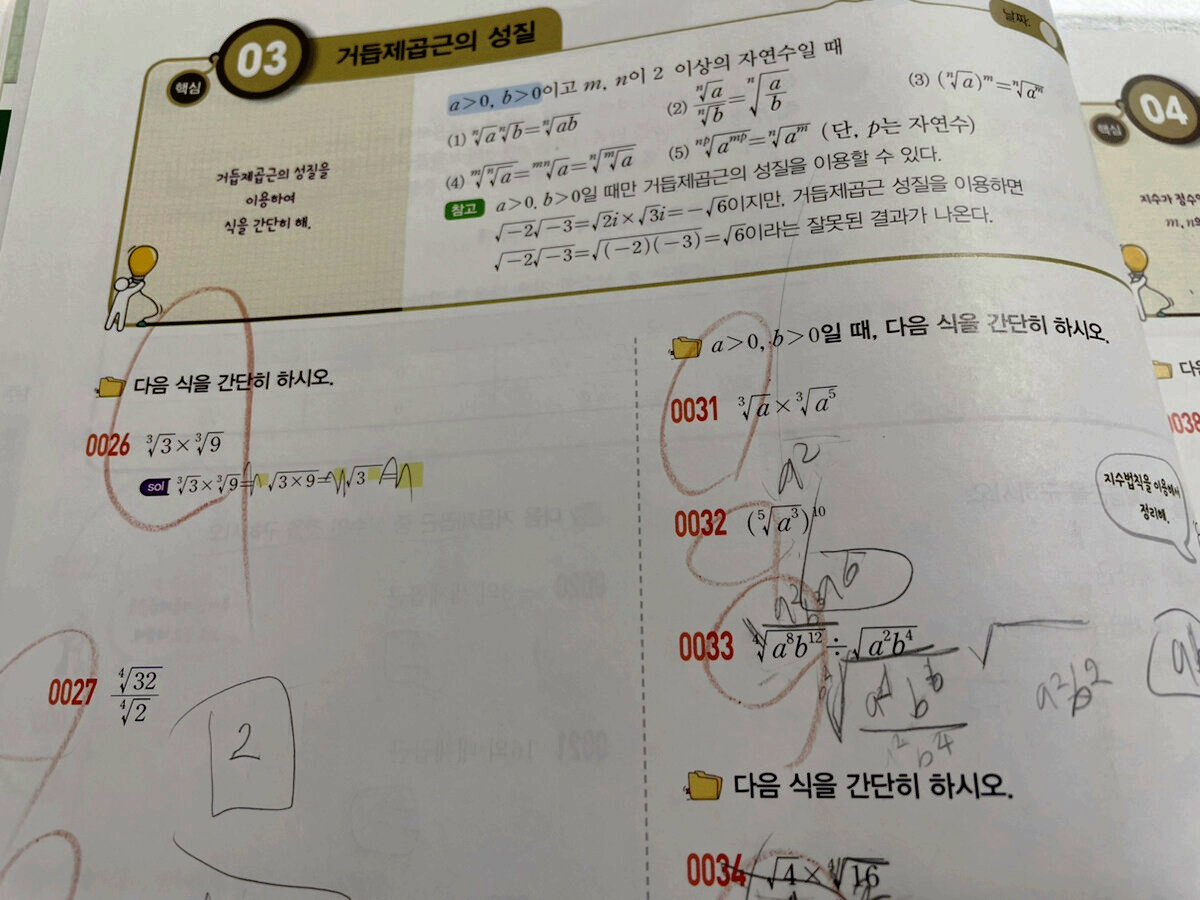 03 거듭제곱근의 성질
날짜:
핵심
거듭제곱근의 성질을
이용하여
식을 간단히 해.
a>0, b>0이고 m, n이 2 이상의 자연수일 때
(1) ⁿ√a ⁿ√b=ⁿ√ab (2) ⁿ√a/ⁿ√b=ⁿ√(a/b) (3) (ⁿ√a)ᵐ=ⁿ√aᵐ
(4) ᵐ√ⁿ√a=ᵐⁿ√a=ⁿ√ᵐ√a (5) ⁿᵖ√aᵐᵖ=ⁿ√aᵐ (단, p는 자연수)
참고 a>0, b>0일 때만 거듭제곱근의 성질을 이용할 수 있다.
√-2√-3=√2i×√3i=-√6이지만, 거듭제곱근 성질을 이용하면
√-2√-3=√(-2)(-3)=√6이라는 잘못된 결과가 나온다.
다음 식을 간단히 하시오.
0026 ³√3×³√9
sol ³√3×³√9= √3×9= √3
0027 ⁴√32/⁴√2
2
a>0, b>0일 때, 다음 식을 간단히 하시오.
0031 ³√a׳√a⁵
a²
0032 (⁵√a³)¹⁰
a⁶
0033 ⁴√a⁸b¹²÷√a²b⁴
a²b²
다음 식을 간단히 하시오.
0034 √4×⁴√16
핵심 04
지수가 정수
m, n
0038
지수법칙을 이용해서
정리해.